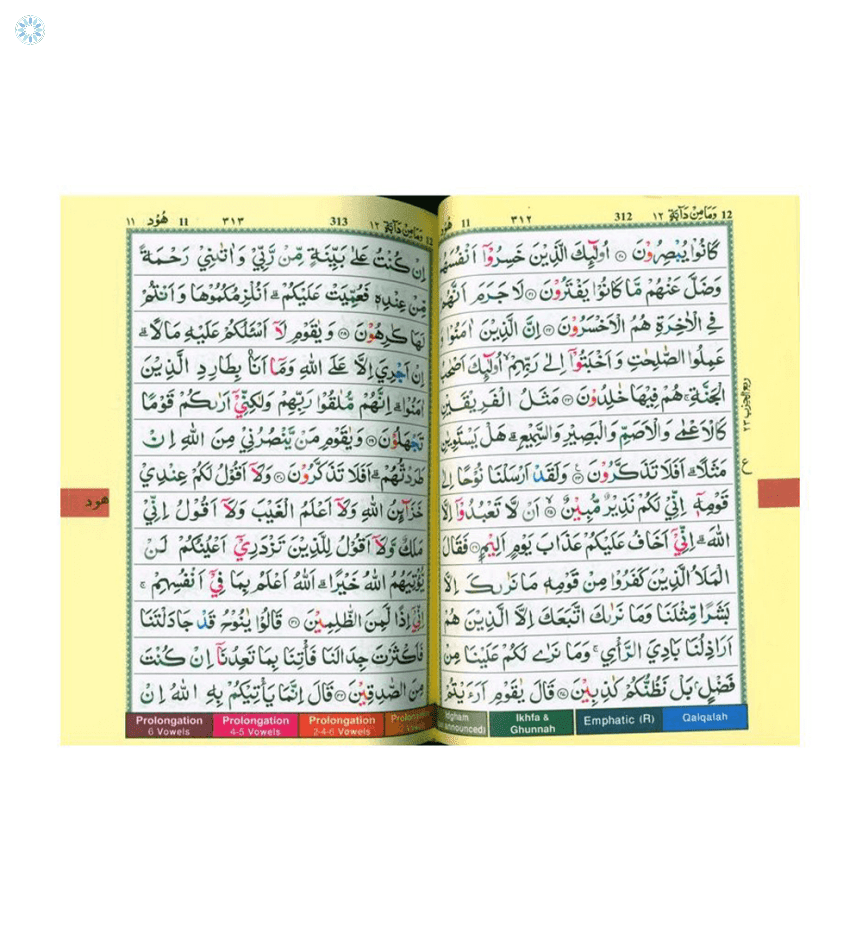 12 وَمَا مِنْ دَآبَّةٍ ١٢ 312 ٣١٢ 11 هُوْد
كَانُوْا يُبْصِرُوْنَ ۝ اُولٰٓئِكَ الَّذِيْنَ خَسِرُوْٓا اَنْفُسَهُمْ
وَضَلَّ عَنْهُمْ مَّا كَانُوْا يَفْتَرُوْنَ ۝ لَا جَرَمَ اَنَّهُمْ
فِي الْاٰخِرَةِ هُمُ الْاَخْسَرُوْنَ ۝ اِنَّ الَّذِيْنَ اٰمَنُوْا وَ
عَمِلُوا الصّٰلِحٰتِ وَاَخْبَتُوْٓا اِلٰى رَبِّهِمْ ۙ اُولٰٓئِكَ اَصْحٰبُ
الْجَنَّةِ ۚ هُمْ فِيْهَا خٰلِدُوْنَ ۝ مَثَلُ الْفَرِيْقَيْنِ
كَالْاَعْمٰى وَالْاَصَمِّ وَالْبَصِيْرِ وَالسَّمِيْعِ ۭ هَلْ يَسْتَوِيٰنِ
مَثَلًا ۭ اَفَلَا تَذَكَّرُوْنَ ۝ وَلَقَدْ اَرْسَلْنَا نُوْحًا اِلٰى
قَوْمِهٖٓ اِنِّيْ لَكُمْ نَذِيْرٌ مُّبِيْنٌ ۝ اَنْ لَّا تَعْبُدُوْٓا اِلَّا
اللّٰهَ ۭ اِنِّيْٓ اَخَافُ عَلَيْكُمْ عَذَابَ يَوْمٍ اَلِيْمٍ ۝ فَقَالَ
الْمَلَاُ الَّذِيْنَ كَفَرُوْا مِنْ قَوْمِهٖ مَا نَرٰىكَ اِلَّا
بَشَرًا مِّثْلَنَا وَمَا نَرٰىكَ اتَّبَعَكَ اِلَّا الَّذِيْنَ هُمْ
اَرَاذِلُنَا بَادِيَ الرَّاْيِ ۚ وَمَا نَرٰى لَكُمْ عَلَيْنَا مِنْ
فَضْلٍۭ بَلْ نَظُنُّكُمْ كٰذِبِيْنَ ۝ قَالَ يٰقَوْمِ اَرَءَيْتُمْ
ربع الحزب ٢٣
ع
12 وَمَا مِنْ دَآبَّةٍ ١٢ 313 ٣١٣ 11 هُوْد ١١
اِنْ كُنْتُ عَلٰى بَيِّنَةٍ مِّنْ رَّبِّيْ وَاٰتٰىنِيْ رَحْمَةً
مِّنْ عِنْدِهٖ فَعُمِّيَتْ عَلَيْكُمْ ۭ اَنُلْزِمُكُمُوْهَا وَاَنْتُمْ
لَهَا كٰرِهُوْنَ ۝ وَيٰقَوْمِ لَآ اَسْـَٔلُكُمْ عَلَيْهِ مَالًا ۭ
اِنْ اَجْرِيَ اِلَّا عَلَى اللّٰهِ وَمَآ اَنَا۠ بِطَارِدِ الَّذِيْنَ
اٰمَنُوْا ۭ اِنَّهُمْ مُّلٰقُوْا رَبِّهِمْ وَلٰكِنِّيْٓ اَرٰىكُمْ قَوْمًا
تَجْهَلُوْنَ ۝ وَيٰقَوْمِ مَنْ يَّنْصُرُنِيْ مِنَ اللّٰهِ اِنْ
طَرَدْتُّهُمْ ۭ اَفَلَا تَذَكَّرُوْنَ ۝ وَلَآ اَقُوْلُ لَكُمْ عِنْدِيْ
خَزَآئِنُ اللّٰهِ وَلَآ اَعْلَمُ الْغَيْبَ وَلَآ اَقُوْلُ اِنِّيْ
مَلَكٌ وَّلَآ اَقُوْلُ لِلَّذِيْنَ تَزْدَرِيْٓ اَعْيُنُكُمْ لَنْ
يُّؤْتِيَهُمُ اللّٰهُ خَيْرًا ۭ اَللّٰهُ اَعْلَمُ بِمَا فِيْٓ اَنْفُسِهِمْ ۚ
اِنِّيْٓ اِذًا لَّمِنَ الظّٰلِمِيْنَ ۝ قَالُوْا يٰنُوْحُ قَدْ جَادَلْتَنَا
فَاَكْثَرْتَ جِدَالَنَا فَاْتِنَا بِمَا تَعِدُنَآ اِنْ كُنْتَ
مِنَ الصّٰدِقِيْنَ ۝ قَالَ اِنَّمَا يَاْتِيْكُمْ بِهِ اللّٰهُ اِنْ
هود
Prolongation Prolongation Prolongation Ikhfa & Emphatic (R) Qalqalah
6 Vowels 4-5 Vowels 2-4-6 Vowels Vowels announced) Ghunnah